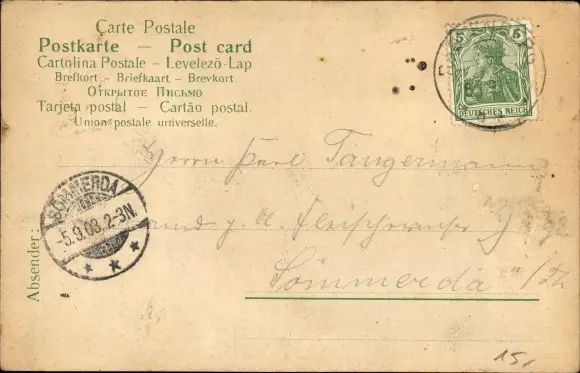 Carte Postale
Postkarte — Post card
Cartolina Postale - Levelező-Lap
Brefkort - Briefkaart - Brevkort
Открытое Письмо
Tarjeta postal - Cartão postal.
Union postale universelle.
5 5
DEUTSCHES REICH
Herrn
Tangermann
SÖMMERDA
-5.9.03.2-3N.
Absender:
Sömmerda i/Th
15,